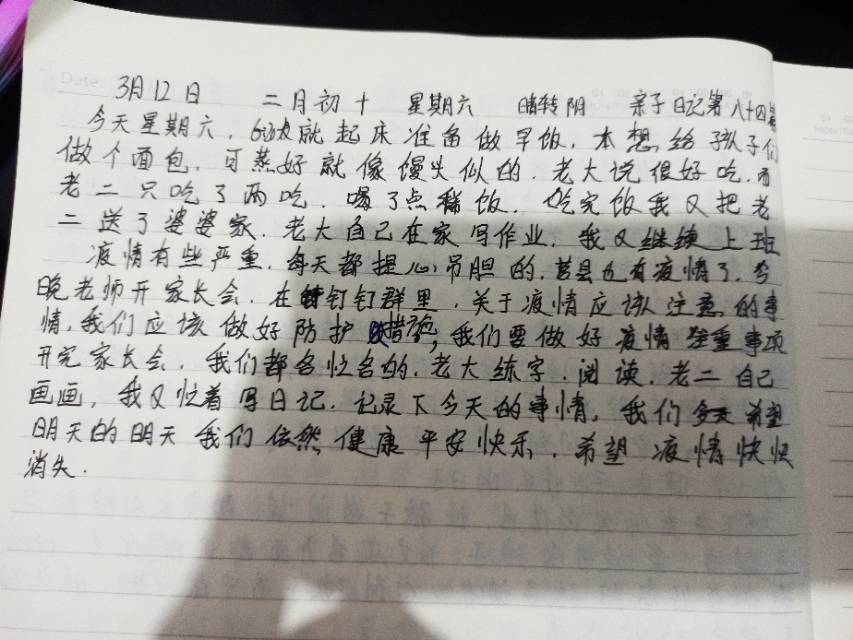 3月12日 二月初十 星期六 晴转阴 亲子日记第八十四篇
今天星期六，6点就起床准备做早饭，本想给孩子们
做个面包，可蒸好就像馒头似的，老大说很好吃，而
老二只吃了两吃，喝了点稀饭，吃完饭我又把老
二送了婆婆家，老大自己在家写作业，我又继续上班
疫情有些严重，每天都提心吊胆的，莒县也有疫情了，今
晚老师开家长会，在钉钉群里，关于疫情应该注意的事
情，我们应该做好防护措施，我们要做好疫情 事项
开完家长会，我们都各忙各的，老大练字，阅读，老二自己
画画，我又忙着写日记，记录下今天的事情，我们 希望
明天的明天我们依然健康平安快乐，希望疫情快快
消失.